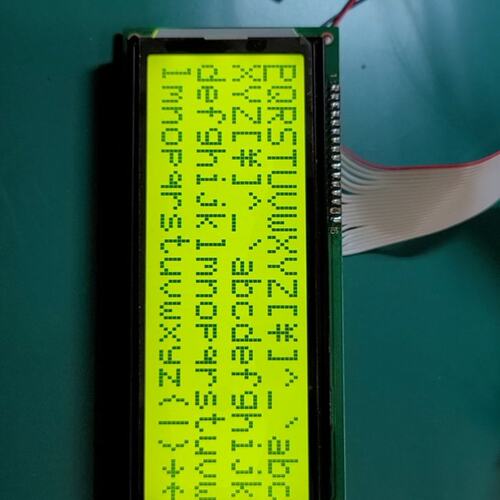 PQRSTUVWXYZ[¥]^_`abc
XYZ[¥]^_`abcdefghijk
defghijklmnopqrstuvw
lmnopqrstuvwxyz{|}→←
1
16